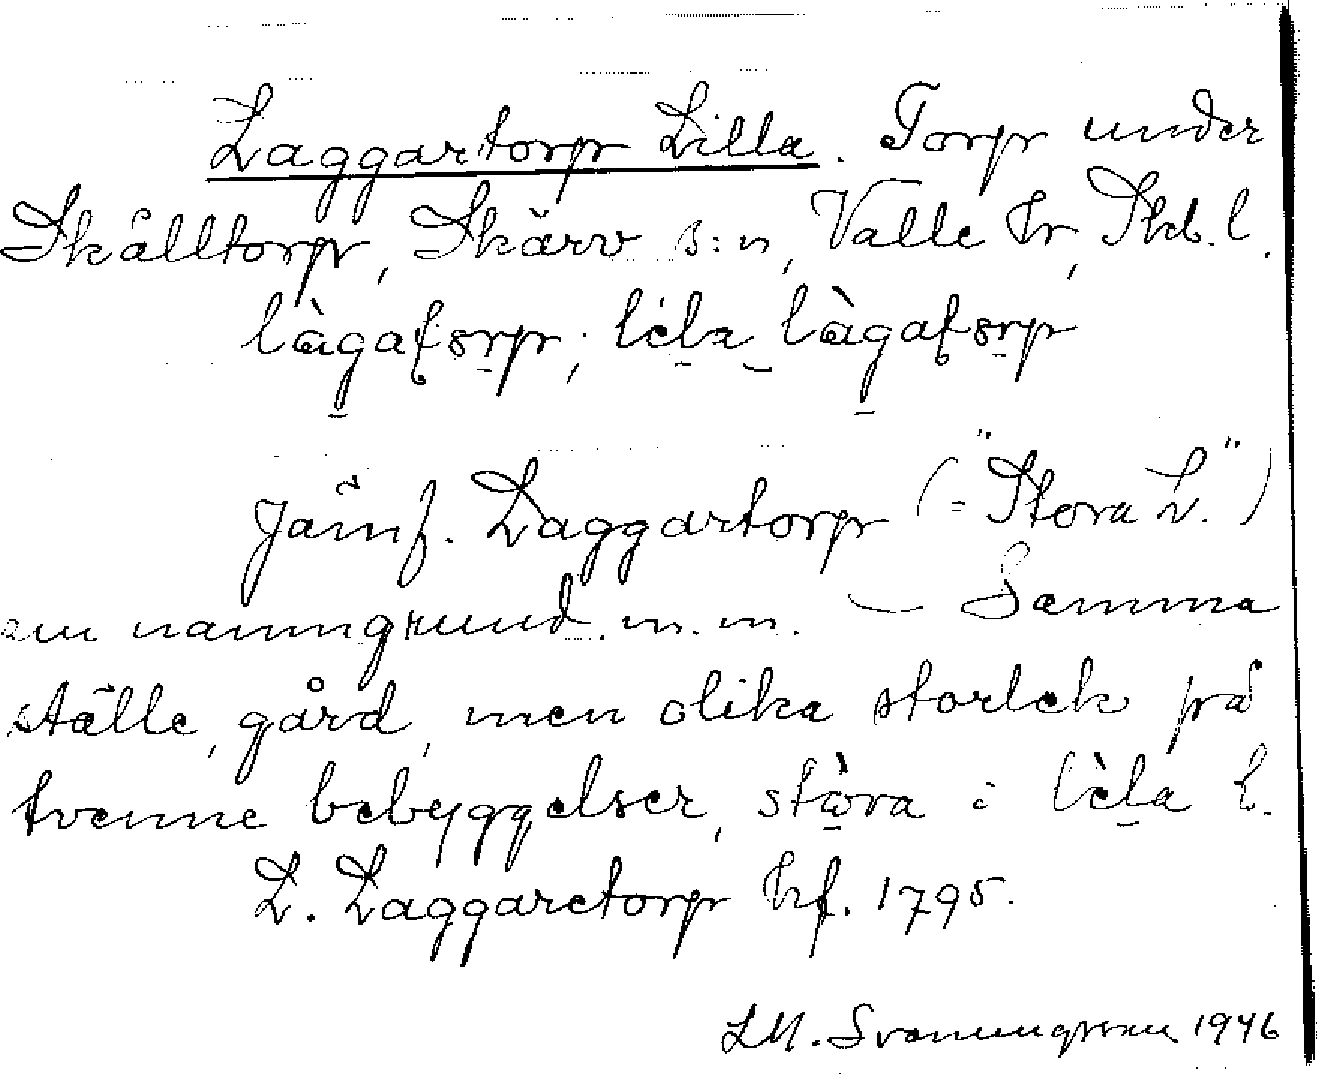 Laggartorp Lilla. Torp under
Skålltorp, Skärv s:n, Valle hr, Skb. l.
làgaʈorp; lila làgaʈorp
Jämf. Laggartorp (= "Stora L.")
om namngrund m. m. — Samma
ställe, gård, men olika storlek på
tvenne bebyggelser, stòra o lìla L.
L. Laggaretorp hf. 1795.
LM. Svanungsson 1946